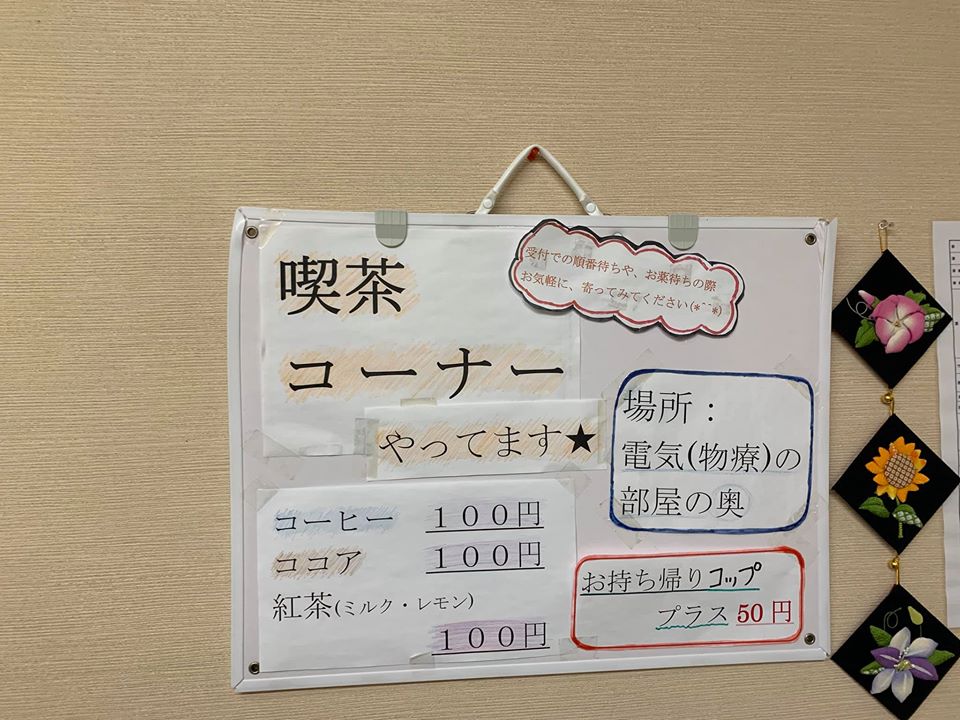 喫茶
コーナー
やってます★
受付での順番待ちや、お薬待ちの際
お気軽に、寄ってみてください(*^^*)
場所：
電気(物療)の
部屋の奥
コーヒー　１００円
ココア　１００円
紅茶(ミルク・レモン)
１００円
お持ち帰りコップ
プラス 50 円